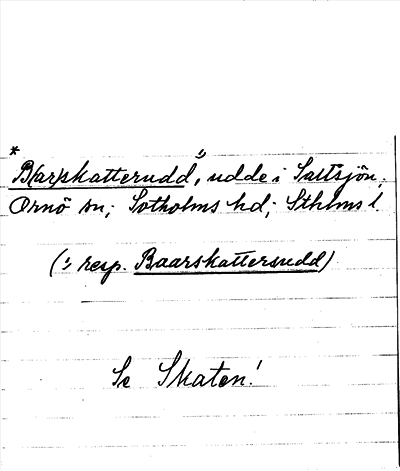 *
B(ar)skatterudd", udde i Saltsjön,
Ornö sn; Sotholms hd; Sthlms l.
(:, resp. Baarskattersudd)
Se Skaten!